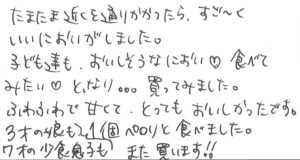 たまたま近くを通りかかったら、すご〜く
いいにおいがしました。
子ども達も、おいしそうなにおい♡ 食べて
みたい♡ となり... 買ってみました。
ふわふわで甘くて、とってもおいしかったです。
3才の娘も1個ペロリと食べました。
7才の少食息子も
また買います!!